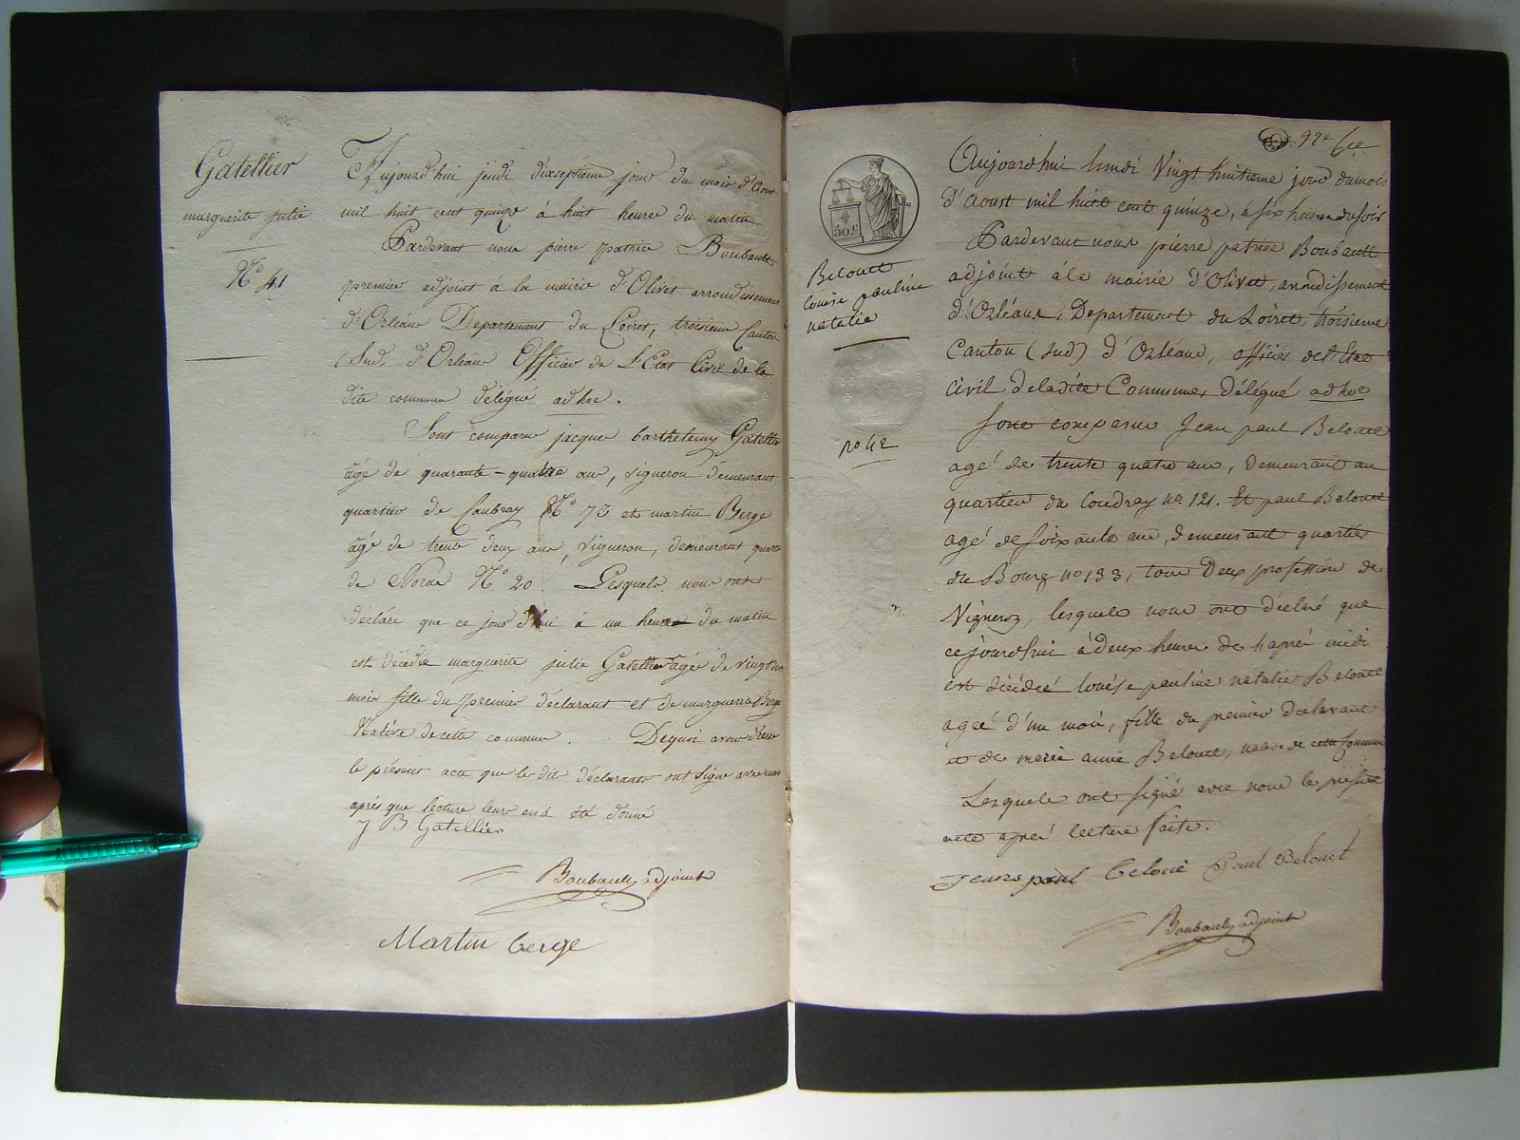 Gatellier
marguerite julie
N° 41
Aujourd'hui jeudi dixseptieme jour du mois d'Aout
mil huit cent quinze à huit heure du matin
Pardevant nous pierre patrice Boubault
premier adjoint à la mairie d'Olivet arrondissement
d'Orléans Departement du Loiret, troisieme Canton
(Sud) d'Orléans Officier de l'Etat Civil de la
dite commune délégué ad hoc.
Sont comparu jacque barthelemy Gatellier
âgé de quarante-quatre ans, vigneron demeurant
quartier de Caubray N° 72 et martin Berge
âgé de trente deux ans, vigneron, demeurant quartier
de N° 20. Lesquels nous ont
déclaré que ce jour d'hui à un heure du matin
est décédée marguerite julie Gatellier agé de vingt
mois fille du premier déclarant et de marguerite Berge
Native de cette commune. Dequoi avons dressé
le présent acte que le dit déclarants ont signé avec nous
après que lecture leur en a été donné
J B Gatellier
Boubault adjoint
Martin berge
92e 6e
50 c
Belouet
louise pauline
natalie
no 42
Aujourdhui lundi Vingt huitieme jour du mois
d'Aoust mil huit cent quinze, à six heures du soir
Pardevant nous pierre patrice Boubault
adjoint à la mairie d'Olivet, arrondissement
d'Orléans, Departement du Loiret, troisieme
Canton (Sud) d'Orléans, officier de l'Etat
Civil de ladite Commune, délégué ad hoc
Sont comparu Jean paul Belouet
agé de trente quatre ans, demeurant au
quartier du Coudray no 121. Et paul Belouet
agé de soixante ans, demeurant quartier
du Bourg no 133, tous Deux profession de
Vigneron, lesquels nous ont déclaré que
cejourdhui à deux heures de l'après midi
est décédée louise pauline natalie Belouet
ageé d'un mois, fille du premier déclarant
et de marie anne Belouet, native de cette commune
Lesquels ont signé avec nous le présent
acte après lecture faite.
Jean paul belouet Paul Belouet
Boubault adjoint